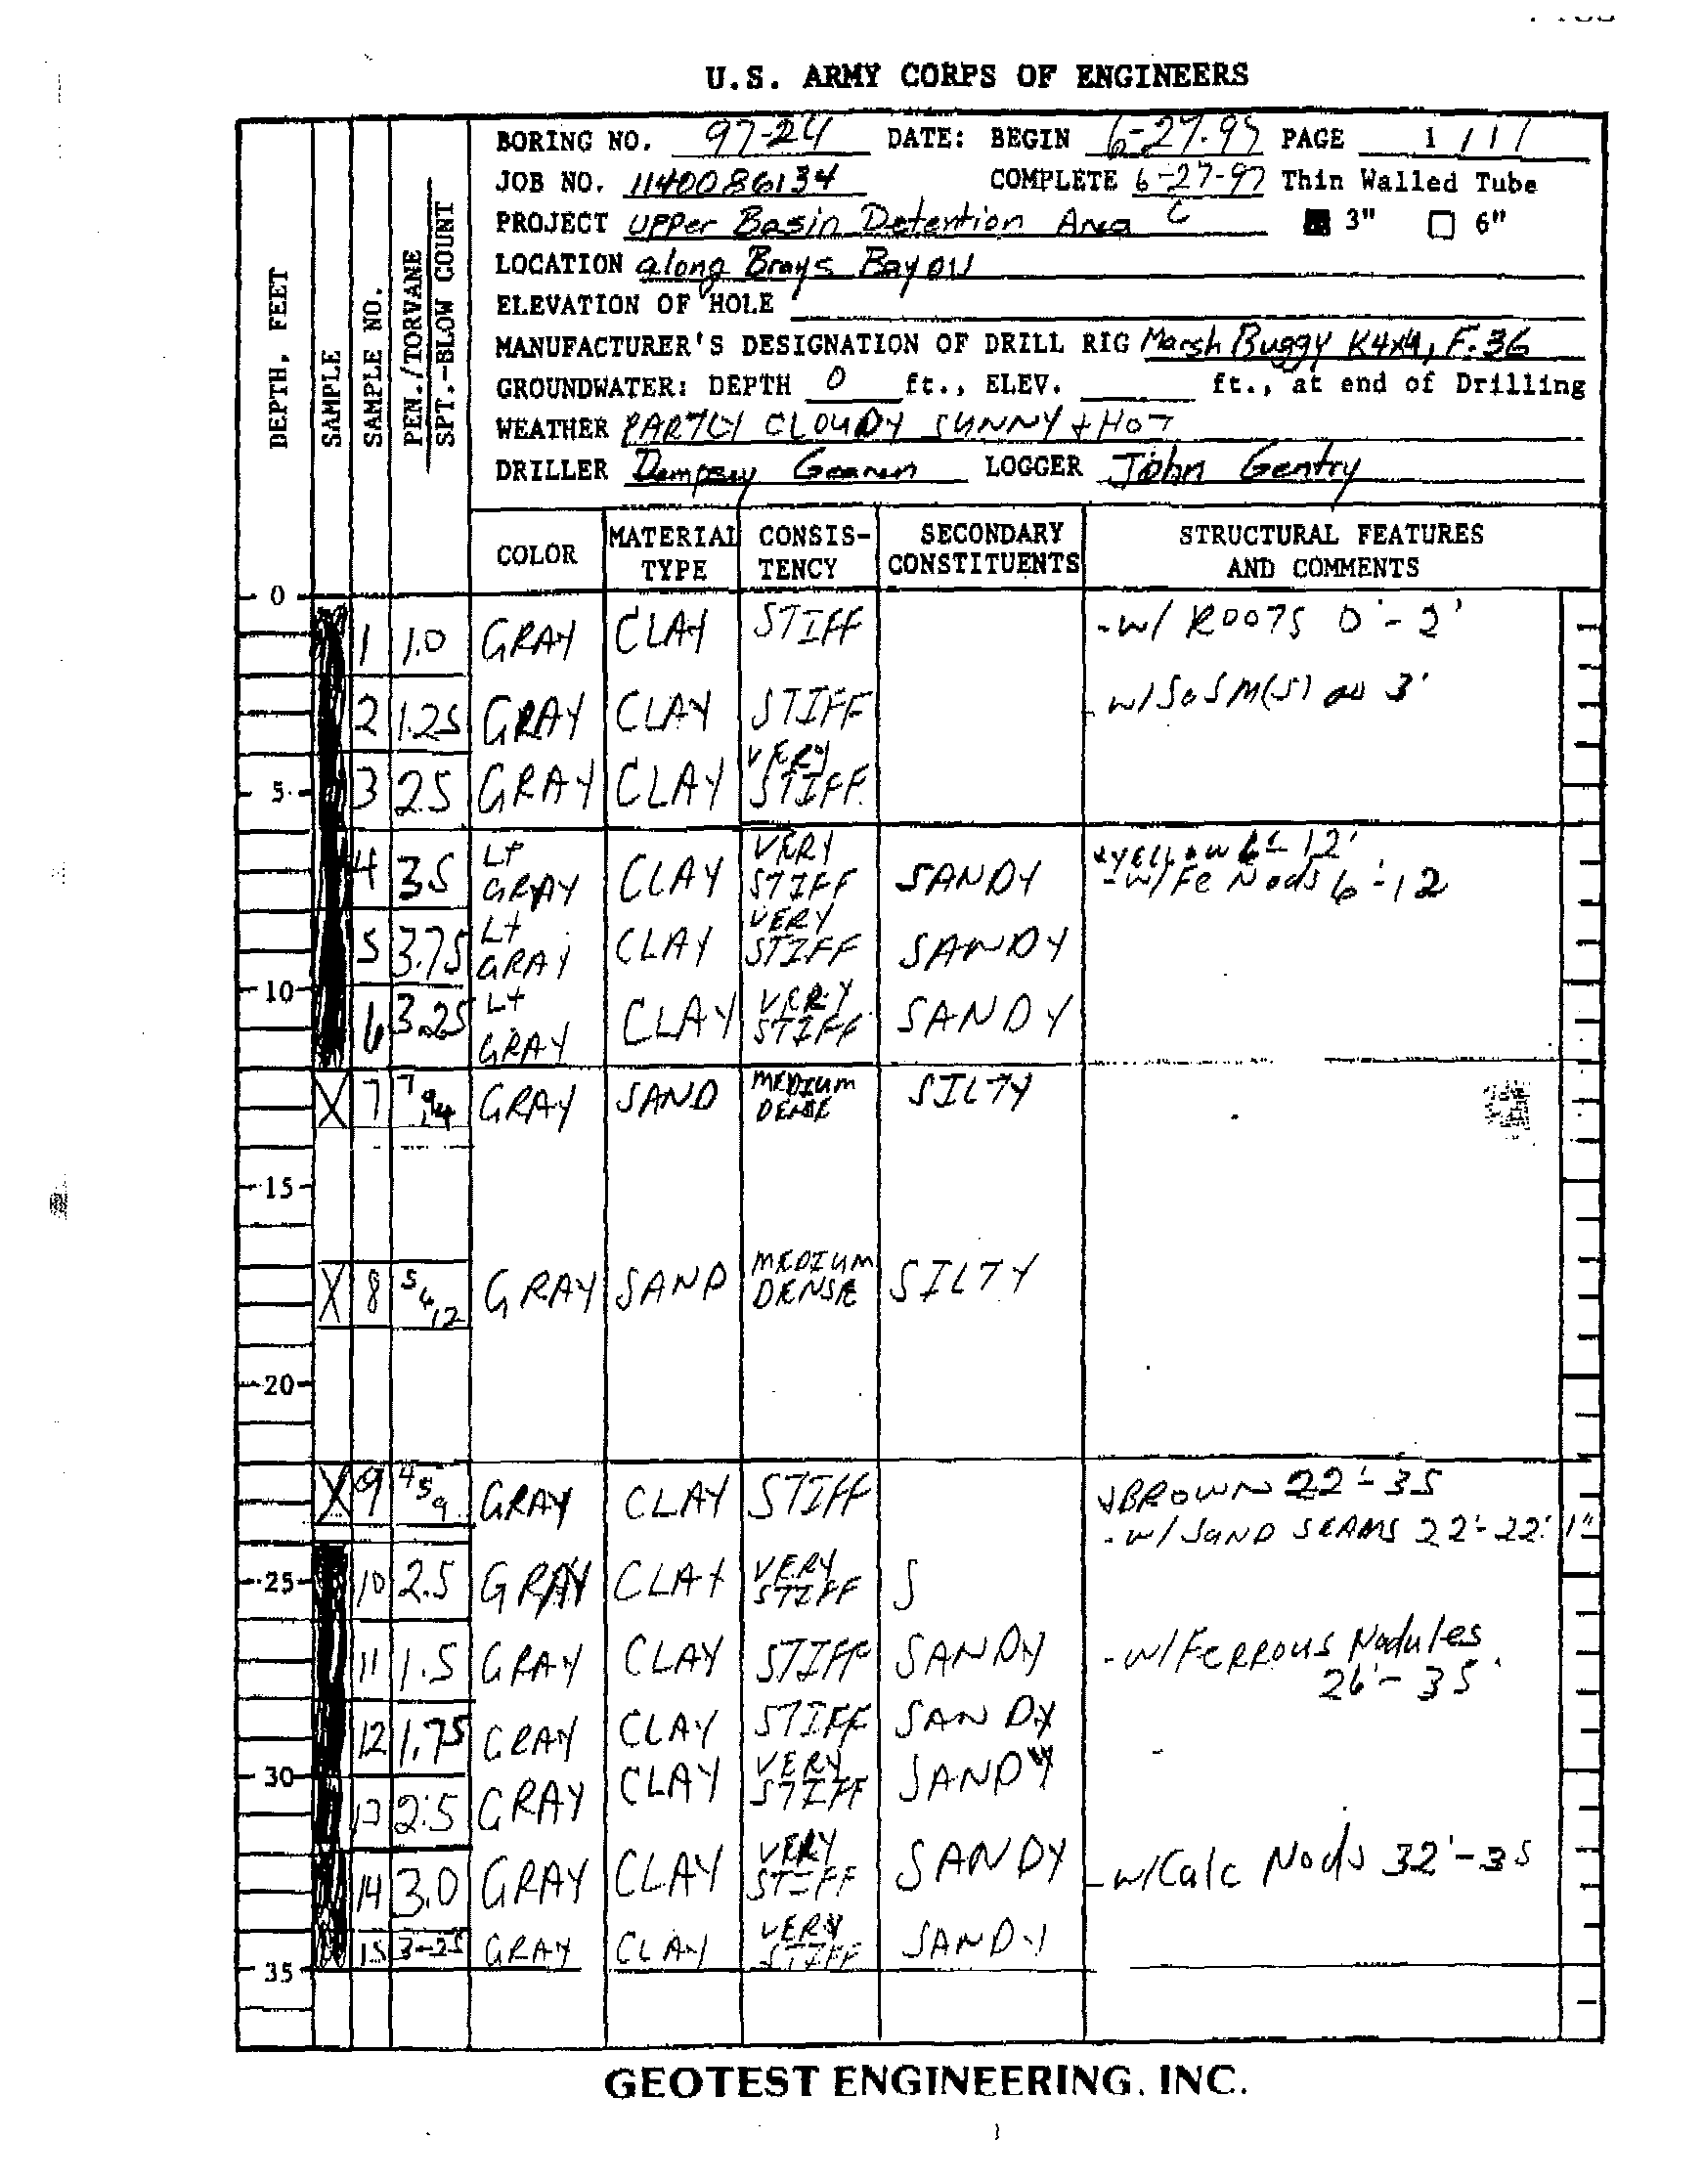 U.S. ARMY CORPS OF ENGINEERS
BORING NO. 97-24 DATE: BEGIN 6-27-97 PAGE 1 / 1
JOB NO. 1140086134 COMPLETE 6-27-97 Thin Walled Tube
PROJECT Upper Basin Detention Area C 3" 6"
LOCATION along Brays Bayou
ELEVATION OF HOLE
MANUFACTURER'S DESIGNATION OF DRILL RIG Marsh Buggy K4x4, F-36
GROUNDWATER: DEPTH 0 ft., ELEV. ft., at end of Drilling
WEATHER PARTLY CLOUDY SUNNY + HOT
DRILLER Dempsey LOGGER John Gentry
DEPTH, FEET
SAMPLE
SAMPLE NO.
PEN./TORVANE
SPT.-BLOW COUNT
COLOR MATERIAL TYPE CONSIS-TENCY SECONDARY CONSTITUENTS STRUCTURAL FEATURES AND COMMENTS
0
1 1.0 GRAY CLAY STIFF -w/ ROOTS 0'-2'
2 1.25 GRAY CLAY STIFF 3'
5 3 2.5 GRAY CLAY VERY STIFF
4 3.5 Lt GRAY CLAY VERY STIFF SANDY +YELLOW 6'-12'
-w/Fe Nods 6'-12
5 3.75 Lt GRAY CLAY VERY STIFF SANDY
10 6 3.25 Lt GRAY CLAY VERY STIFF SANDY
7 7 9 14 GRAY SAND MEDIUM DENSE SILTY
15
8 5 6 12 GRAY SAND MEDIUM DENSE SILTY
20
9 4 5 9 GRAY CLAY STIFF +BROWN 22'-35
-w/ SAND SEAMS 22'-22' 1"
25 10 2.5 GRAY CLAY VERY STIFF S
11 1.5 GRAY CLAY STIFF SANDY -w/FERROUS Nodules
26'-35'
12 1.75 GRAY CLAY STIFF SANDY
30 13 2.5 GRAY CLAY VERY STIFF SANDY
14 3.0 GRAY CLAY VERY STIFF SANDY -w/Calc Nods 32'-35
15 3-25 GRAY CLAY VERY STIFF SANDY
35
GEOTEST ENGINEERING, INC.